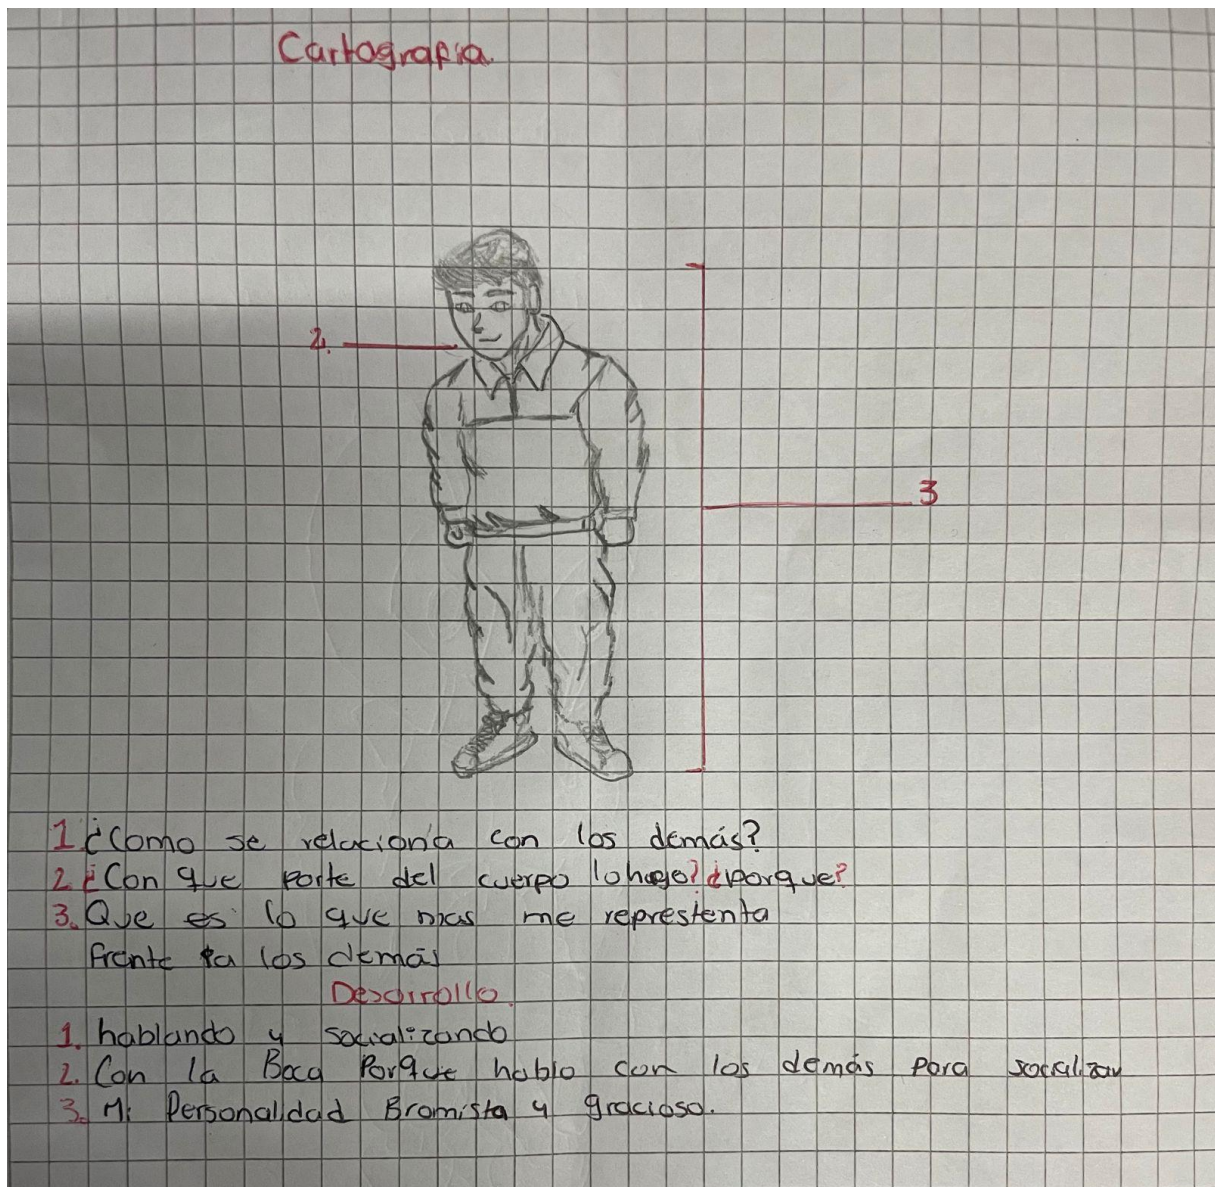 Cartografia.
2.
3
1 ¿Como se relaciona con los demás?
2 ¿Con que parte del cuerpo lo hago? ¿porque?
3. Que es lo que mas me represtenta
frente a los demás
Desarrollo.
1. hablando y socializando
2. Con la Boca Porque hablo con los demás para socializar
3. Mi Personalidad Bromista y gracioso.